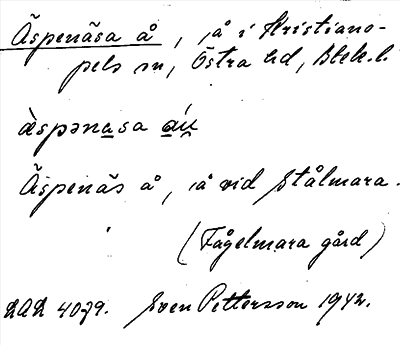 Äspenäsa å, å i Kristiano-
pels sn, Östra hd,Blek. l.
æ̀spənasa áu
Äspenäs å, å vid Stålmara.
(Fågelmara gård)
LAL 4079. Sven Pettersson 1942.